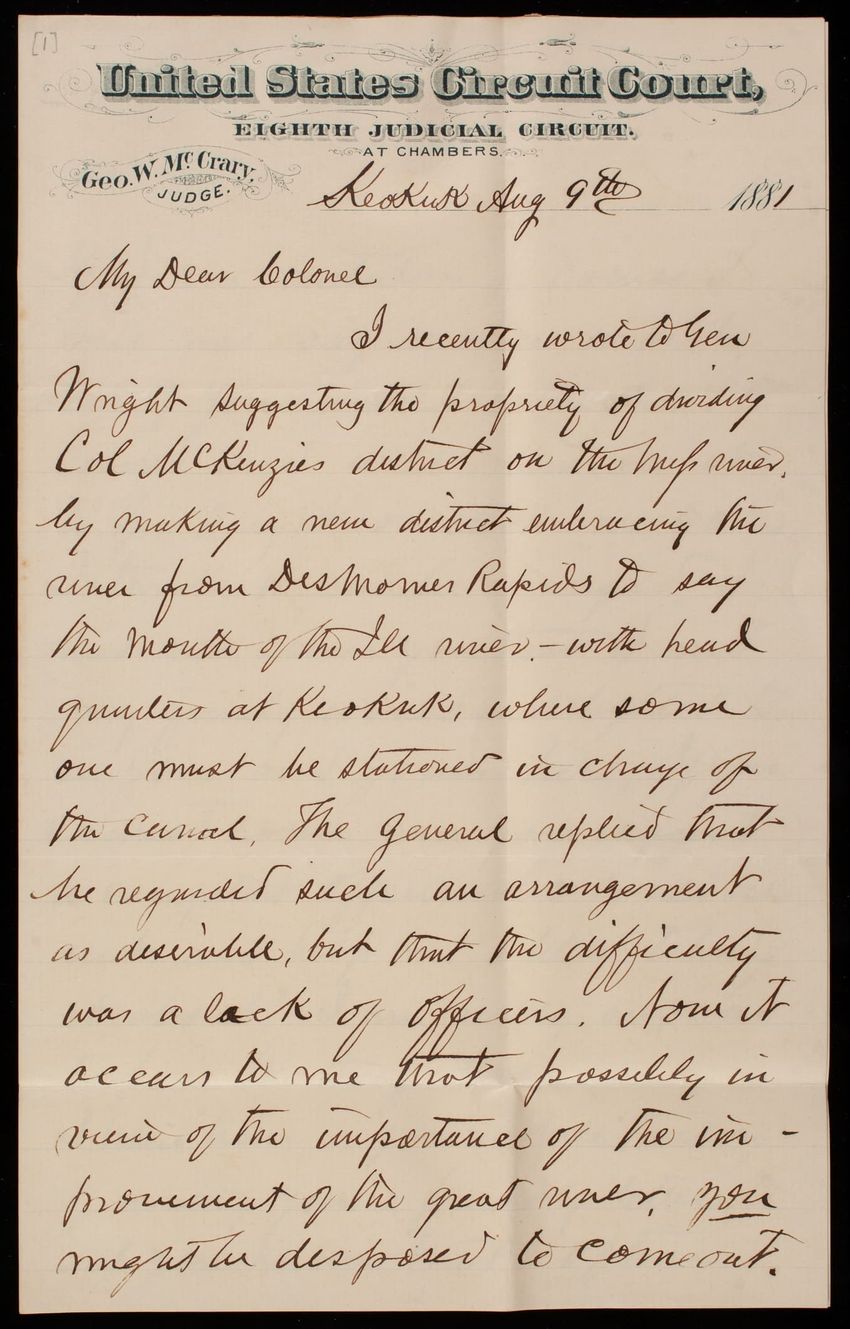 [1]
United States Circuit Court,
EIGHTH JUDICIAL CIRCUIT.
AT CHAMBERS.
Geo. W. McCrary,
JUDGE.
Keokuk Aug 9th 1881
My Dear Colonel
I recently wrote to Gen
Wright suggesting the propriety of dividing
Col McKenzies district on the Miss river,
by making a new district embracing the
river from DesMoines Rapids to say
the Mouth of the Ill river. - with head
quarters at Keokuk, where some
one must be stationed in charge of
the Canal. The General replied that
he regarded such an arrangement
as desirable, but that the difficulty
was a lack of officers. Now it
occurs to me that possibly in
view of the importance of the im-
provement of the great river, you
might be disposed to come out.